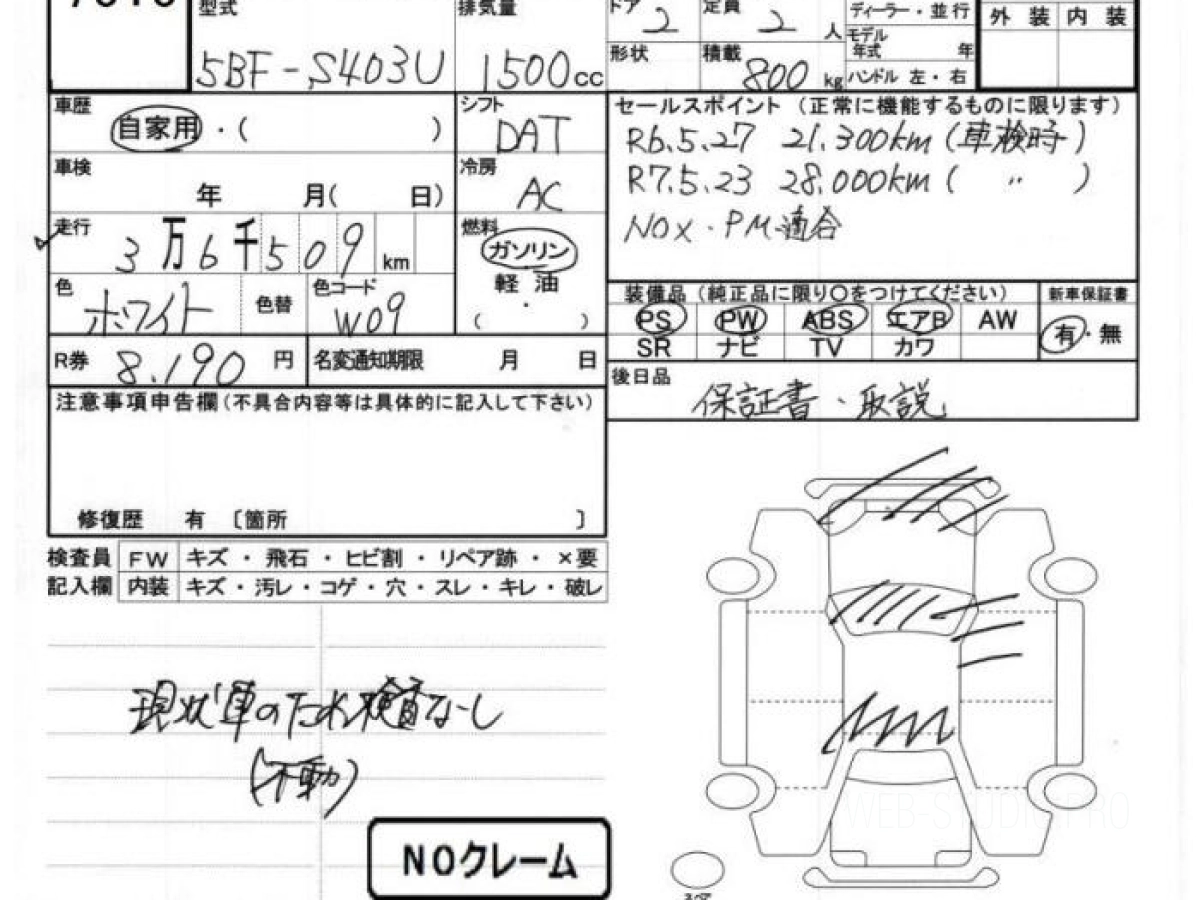 型式
5BF-S403U
排気量
1500cc
ドア 2
定員 2 人
形状
積載 800 kg
ディーラー・並行
モデル年式 年
ハンドル 左・右
外装 内装
車歴 自家用・( )
シフト DAT
車検 年 月( 日)
冷房 AC
走行 3万6千509km
燃料 ガソリン
軽油
・
( )
色 ホワイト
色替
色コード W09
R券 8.190 円
名変通知期限 月 日
注意事項申告欄(不具合内容等は具体的に記入して下さい)
修復歴 有 〔箇所 〕
セールスポイント(正常に機能するものに限ります)
R6.5.27 21.300km(車検時)
R7.5.23 28.000km( 〃 )
NOx・PM適合
装備品(純正品に限り○をつけてください)
新車保証書
PS PW ABS エアB AW
有・無
SR ナビ TV カワ
後日品
保証書・取説
検査員記入欄
FW キズ・飛石・ヒビ割・リペア跡・×要
内装 キズ・汚レ・コゲ・穴・スレ・キレ・破レ
現状車のため検査なし
(不動)
NOクレーム
WEB-STUDIO.PRO